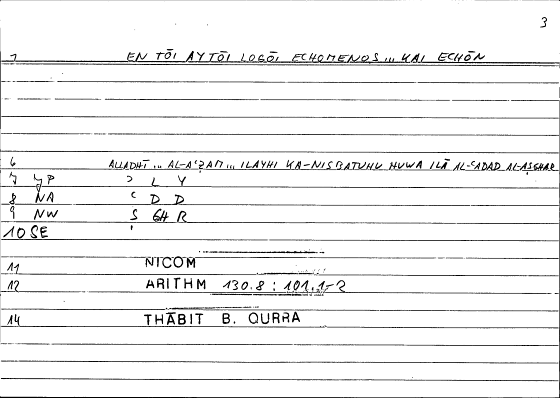 3
1 EN TŌI AYTŌI LOGŌI ECHOMENOS ... KAI ECHŌN
6 ALLADHĪ ... AL-AʿẒAM ... ILAYHI KA-NISBATUHU HUWA ILĀ AL-ʿADAD AL-AṢGHAR
7 YP ʾ L Y
8 NA ʿ D D
9 NW Ṣ GH R
10 SE '
11 NICOM
12 ARITHM 130.8 : 101.1-2
14 THĀBIT B. QURRA